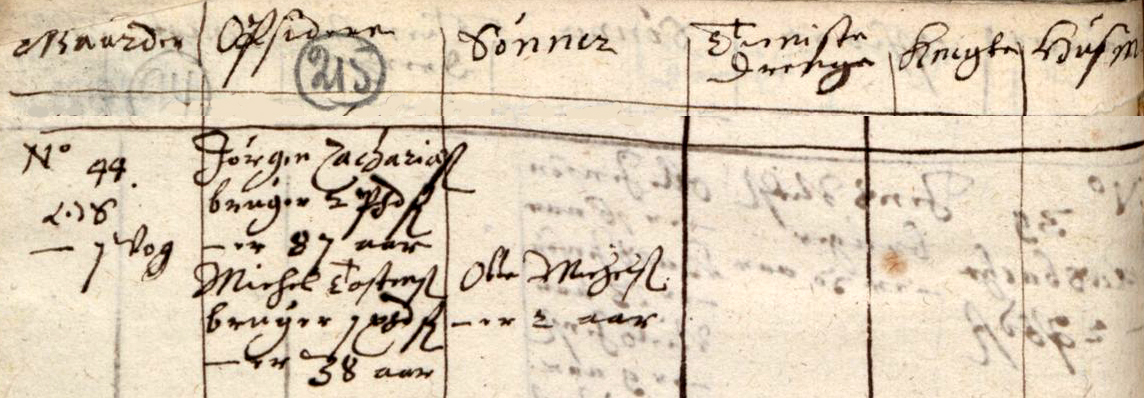 Gaarder Opsidere Sönner Tieniste Drenge Knegte Huusm
215
No 44.
1 Vog
Jörgen Zacharias
bruger 2 Pd ß
— er 87 aar
Michel Tostens
bruger 1 pd ß
— er 38 aar
Olle Michels.
— er 2 aar